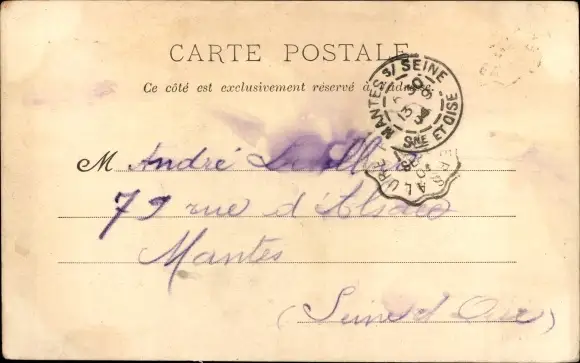 CARTE POSTALE
Ce côté est exclusivement réservé à l'adresse.
MANTES S/ SEINE
SNE ET OISE
M André
79 rue d'Alsace
Mantes
(Seine et Oise)